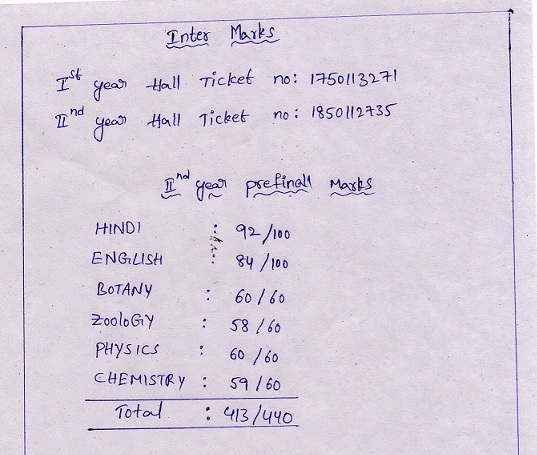 Inter Marks
Ist year Hall Ticket no: 1750113271
IInd year Hall Ticket no: 1850112735
IInd year prefinall Marks
HINDI : 92/100
ENGLISH : 84/100
BOTANY : 60/60
ZOOLOGY : 58/60
PHYSICS : 60/60
CHEMISTRY : 59/60
Total : 413/440